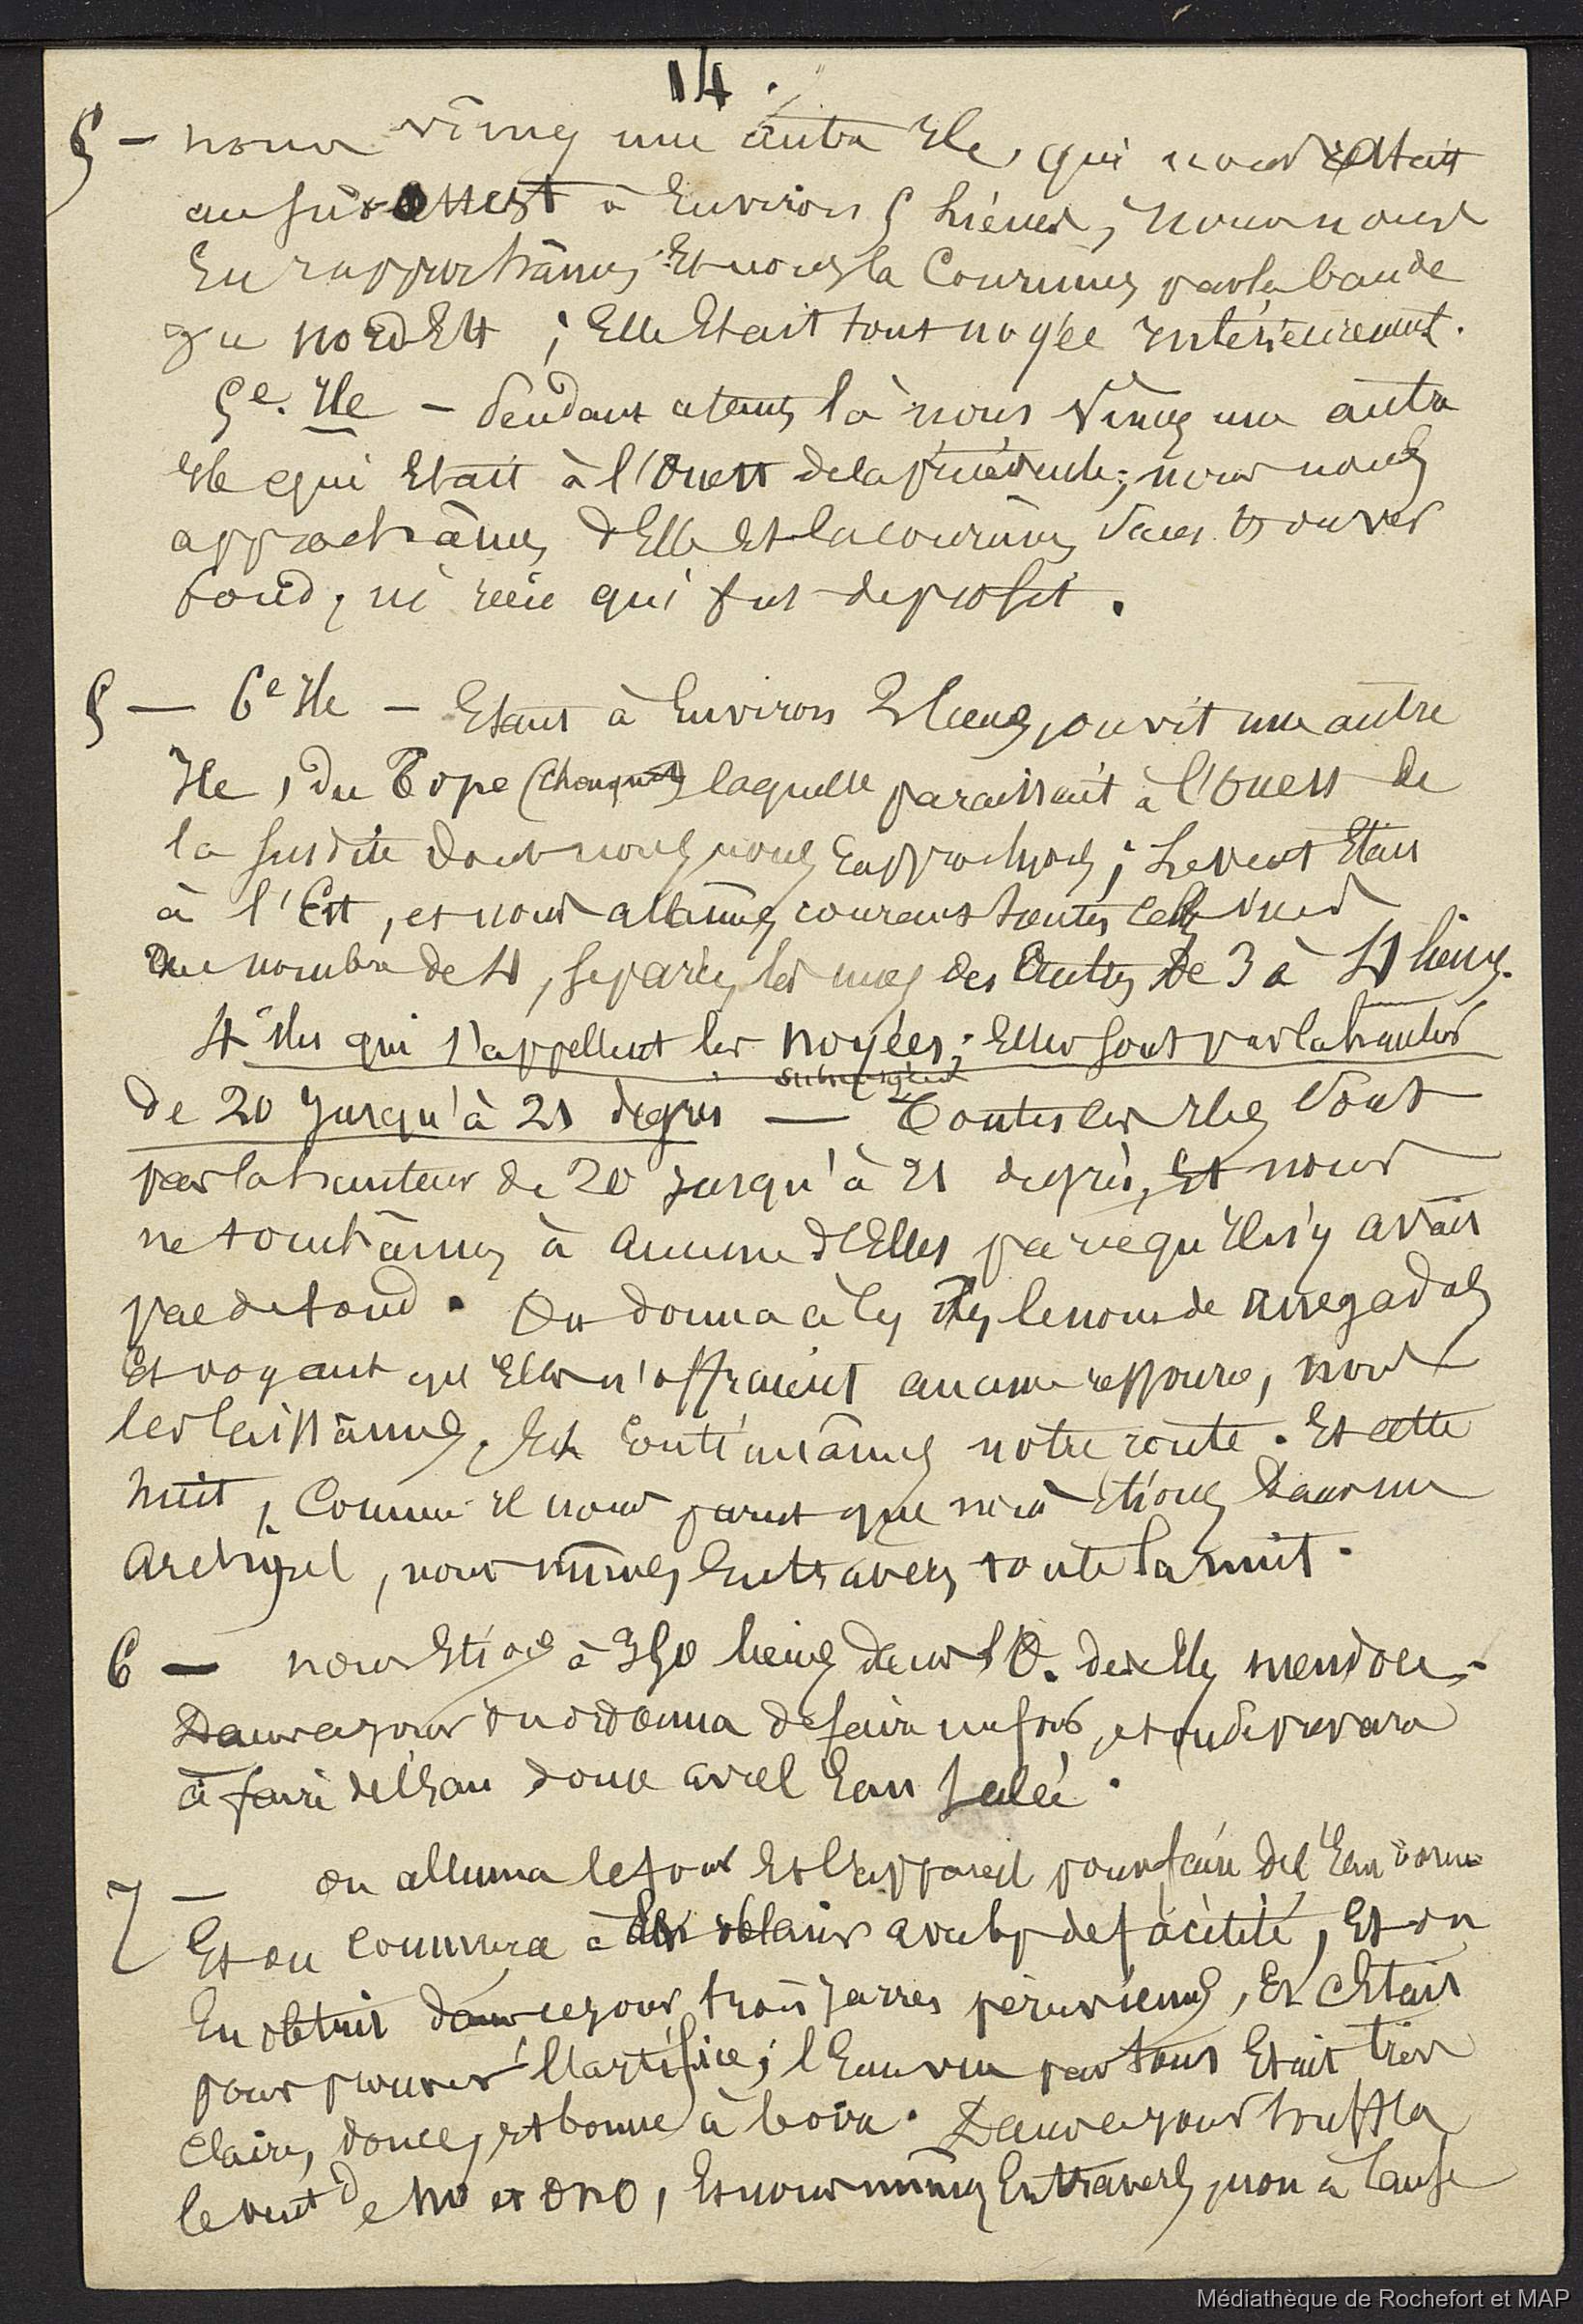 14.
5 — nous vîmes une autre Ile, qui nous restait
au sud ouest à Environ 5 Lieues, nous nous
En rapprochâmes Et nous la Courumes par la bande
du nord Est ; Elle Etait tout noyée Intérieurement.
5e. Ile — Pendant ce tems là nous Vimes une autre
Ile qui Etait à l'Ouest de la précédente; nous nous
approchâmes d'Elle Et la courûmes Sans trouver
fond, ni rien qui fut de profit.
5 — 6e Ile — Etant à Environ 2 lieues, on vit une autre
Ile, du Tope laquelle paraissait à l'Ouest de
la susdite dont nous nous rapprochions ; Le vent Etait
à l'Est, et nous allâmes courant toutes ces Iles
au nombre de 4, separées les unes des Autres de 3 à 4 lieues.
4 Iles qui s'appellent les noyées; Elles sont par la hauteur
submergées
de 20 Jusqu'à 21 degrés — Toutes ces Iles Sont
par la hauteur de 20 Jusqu'à 21 degrés, Et nous
ne touchâmes à Aucune d'Elles parce qu'Il n'y avait
pas de fond. On donna à ces Iles le nom de Anegadas
Et voyant qu'Elles n'offraient aucune ressource, nous
les laissâmes, Et Continuâmes notre route. Et cette
nuit, Comme il nous parut que nous Etions Dans un
Archipel, nous mîmes En travers toute la nuit.
6 — nous Etions à 350 lieues dans l'O. des Iles mendoce.
Dans ce jour on ordonna de faire un four, et on se prepara
à faire de l'Eau douce avec l'Eau Salée.
7 — on alluma le four Et l'appareil pour faire de l'Eau douce
Et on commença à avec bp de facilité, Et on
En obtint dans ce jour trois Jarres péruviennes, Et c'Etait
pour prouver l'artifice ; l'Eau vue par tous Etait très
Claire, douce, et bonne à boire. Dans ce jour souffla
le vent de NO et ONO, Et nous mîmes En travers, non à cause
Médiathèque de Rochefort et MAP